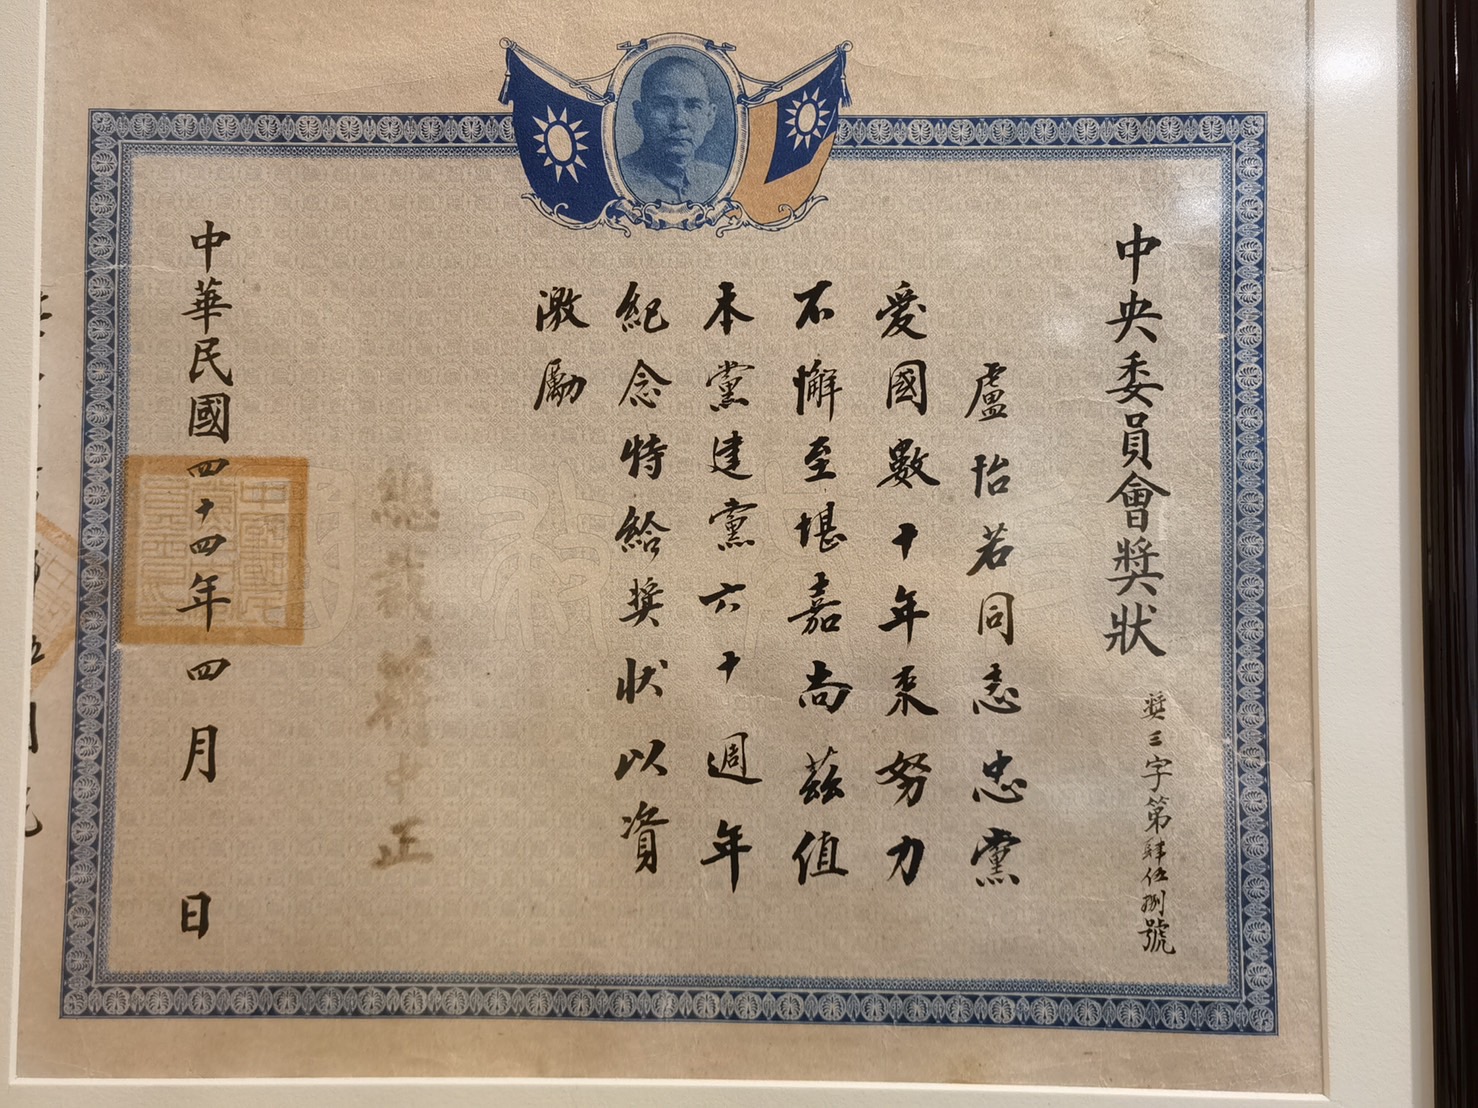 中央委員會獎狀
獎三字第肆伍捌號
盧怡若同志忠黨
愛國數十年來努力
不懈至堪嘉尚茲值
本黨建黨六十週年
紀念特給獎狀以資
激勵
總裁蔣中正
中華民國四十四年四月 日